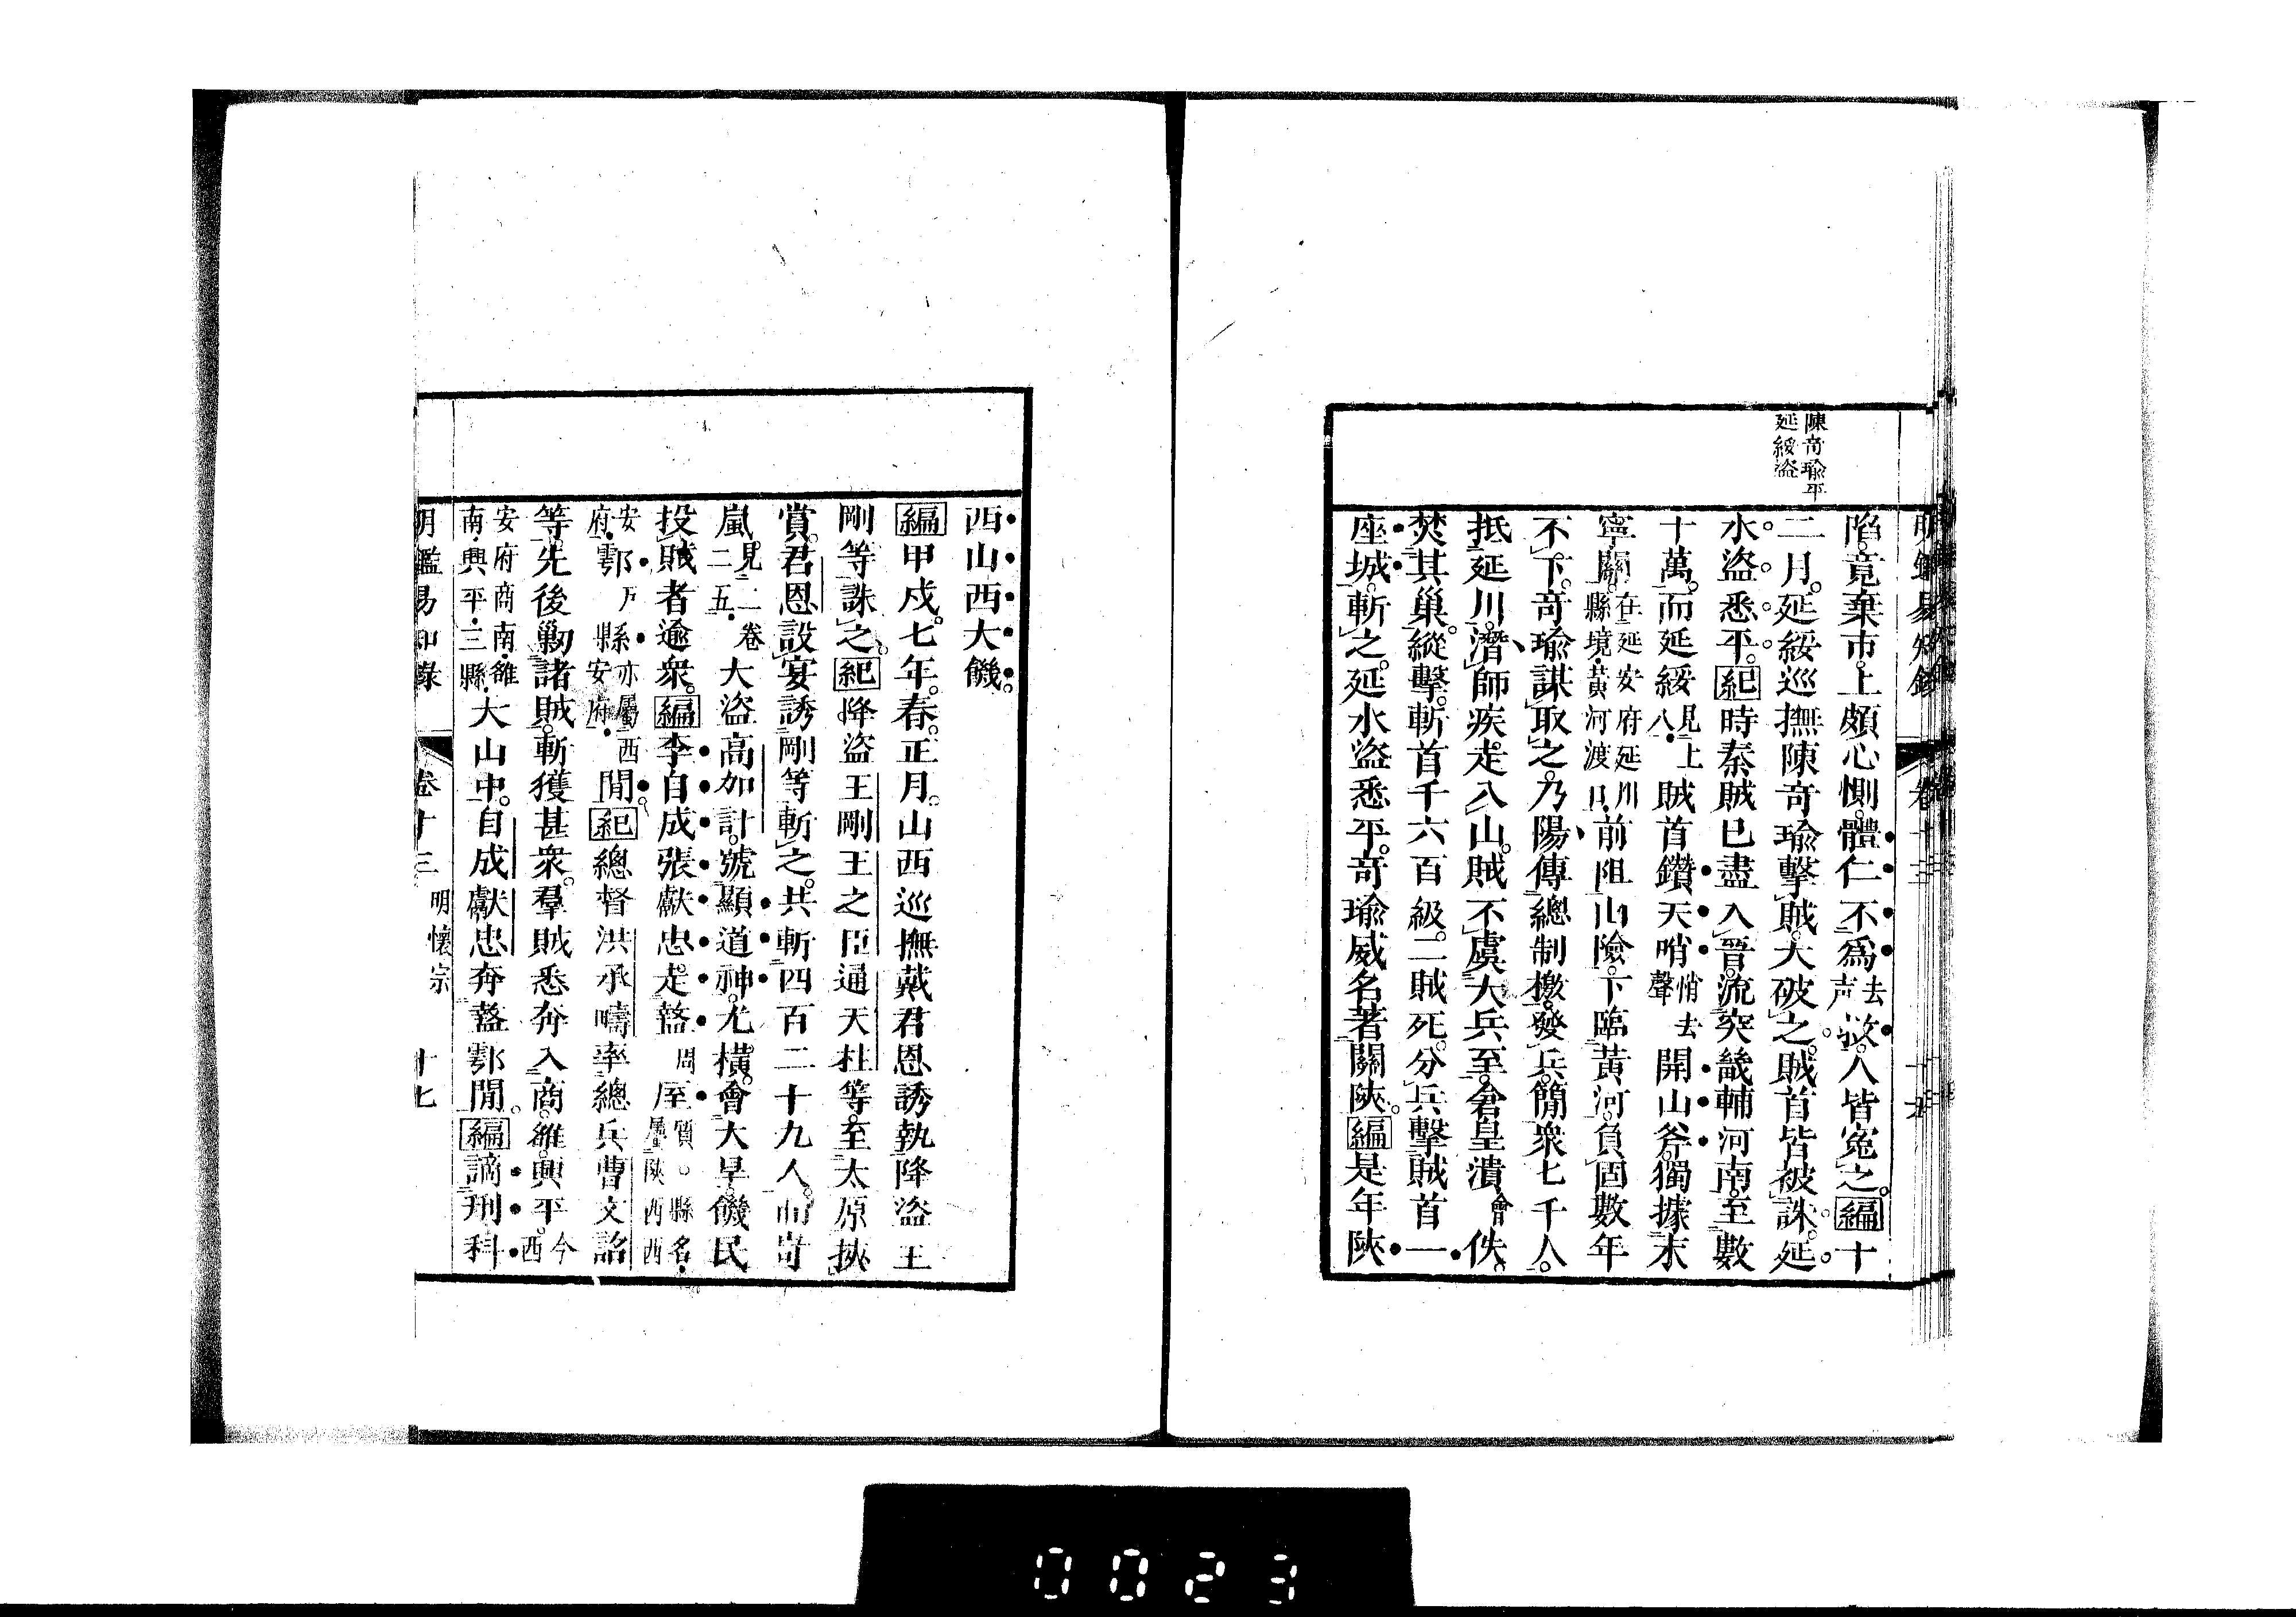 陳奇瑜平
延綏盜
陷。竟棄市。上頗心惻。體仁不爲去声救。人皆寃之。編十
二月。延綏巡撫陳奇瑜擊賊。大破之。賊首皆被誅。延
水盜悉平。紀時秦賊已盡入晉。流突畿輔河南。至數
十萬。而延綏見上八。賊首鑽天哨悄去聲開山斧。獨據永
寧關在延安府延川縣境。黃河渡口。前阻山險。下臨黃河。負固數年
不下。奇瑜謀取之。乃陽傳總制檄。發兵。簡衆七千人。
抵延川。潛師疾走入山。賊不虞大兵至。倉皇潰會佚。
焚其巢。縱擊。斬首千六百級。二賊死。分兵擊賊首一
座城。斬之。延水盜悉平。奇瑜威名著關陝。編是年陝
西山西大饑。
編甲戌。七年。春。正月。山西巡撫戴君恩誘執降盜王
剛等誅之。紀降盜王剛王之臣通天柱等。至太原挾
賞。君恩設宴誘剛等斬之。共斬四百二十九人。而岢
嵐見二卷二五。大盜高加計。號顯道神。尤橫。會大旱。饑民
投賊者逾衆。編李自成張獻忠走盩周厔質。縣名。屬陝西西
安府。鄠戶縣。亦屬西安府。閒。紀總督洪承疇率總兵曹文詔
等。先後勦諸賊。斬獲甚衆。羣賊悉奔入商雒。興平。今西
安府商南。雒南。興平。三縣。大山中。自成獻忠奔盩鄠閒。編謫刑科
明鑑易知錄
卷十三
明懷宗
十七